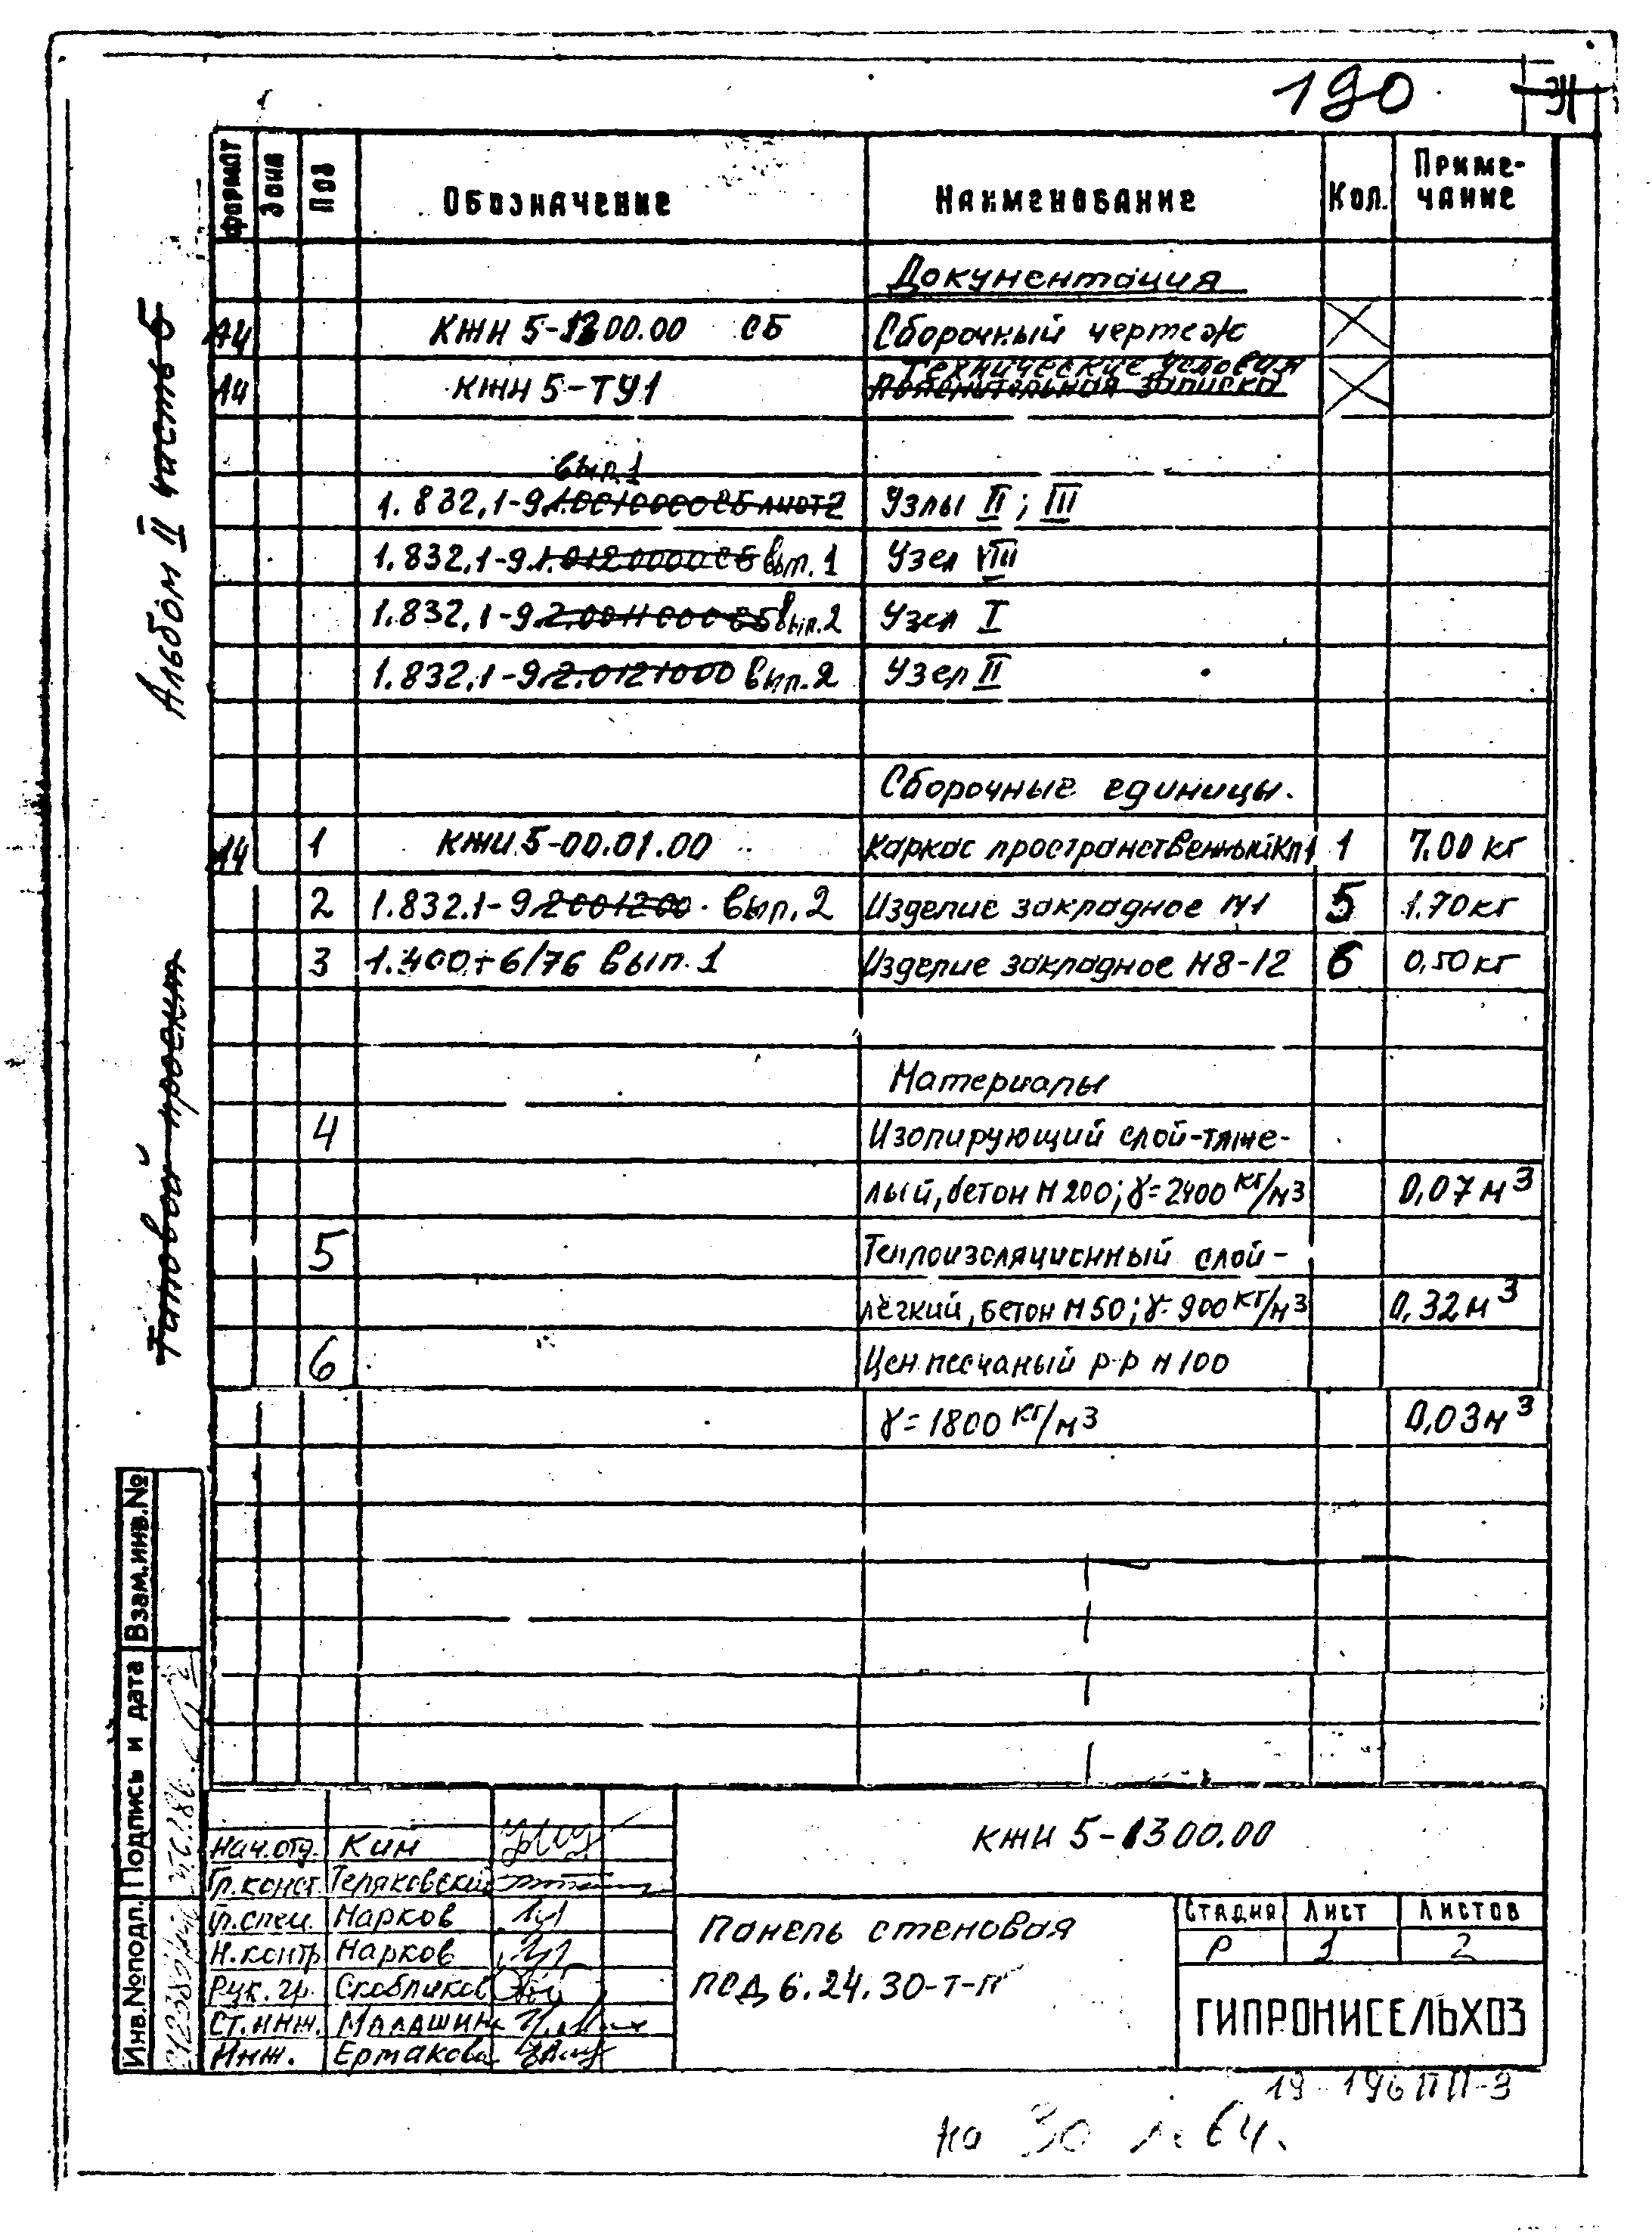 190
Формат Зона Поз Обозначение Наименование Кол. Приме-
чание
Документация
А4 КЖИ 5-1300.00 СБ Сборочный чертеж
Технические условия
А4 КЖИ 5-ТУ1 Пояснительная записка
вып.1
1.832.1-9.1.0010000СБ лист 2 Узлы II; III
1.832.1-9.1.0120000СБ вып.1 Узел VIII
1.832.1-9.2.0011000СБ вып.2 Узел I
1.832.1-9.2.0121000 вып.2 Узел II
Сборочные единицы.
А4 1 КЖИ 5-00.01.00 Каркас пространственный КП1 1 7.00 кг
2 1.832.1-9.2001200. вып.2 Изделие закладное М1 5 1.70 кг
3 1.400-6/76 вып.1 Изделие закладное М8-12 6 0,50 кг
Материалы
4 Изолирующий слой-тяже-
лый, бетон М200; γ=2400 кг/м3 0,07 м3
5 Теплоизоляционный слой-
лёгкий, бетон М50; γ=900 кг/м3 0,32 м3
6 Цем песчаный р-р М100
γ=1800 кг/м3 0,03 м3
Альбом II часть 5
Типовой проект
Взам.инв.№
Подпись и дата
Инв.№подл.
Нач.отд. Ким
Гр.конст. Теряковский
Гл.спец. Марков
Н.контр Марков
Рук.гр. Скобликов
Ст.инж. Малашин
Инж. Ермакова
КЖИ 5-1300.00
Панель стеновая
ПСД 6.24.30-Т-П
Стадия Лист Листов
Р 1 2
ГИПРОНИСЕЛЬХОЗ
на 30